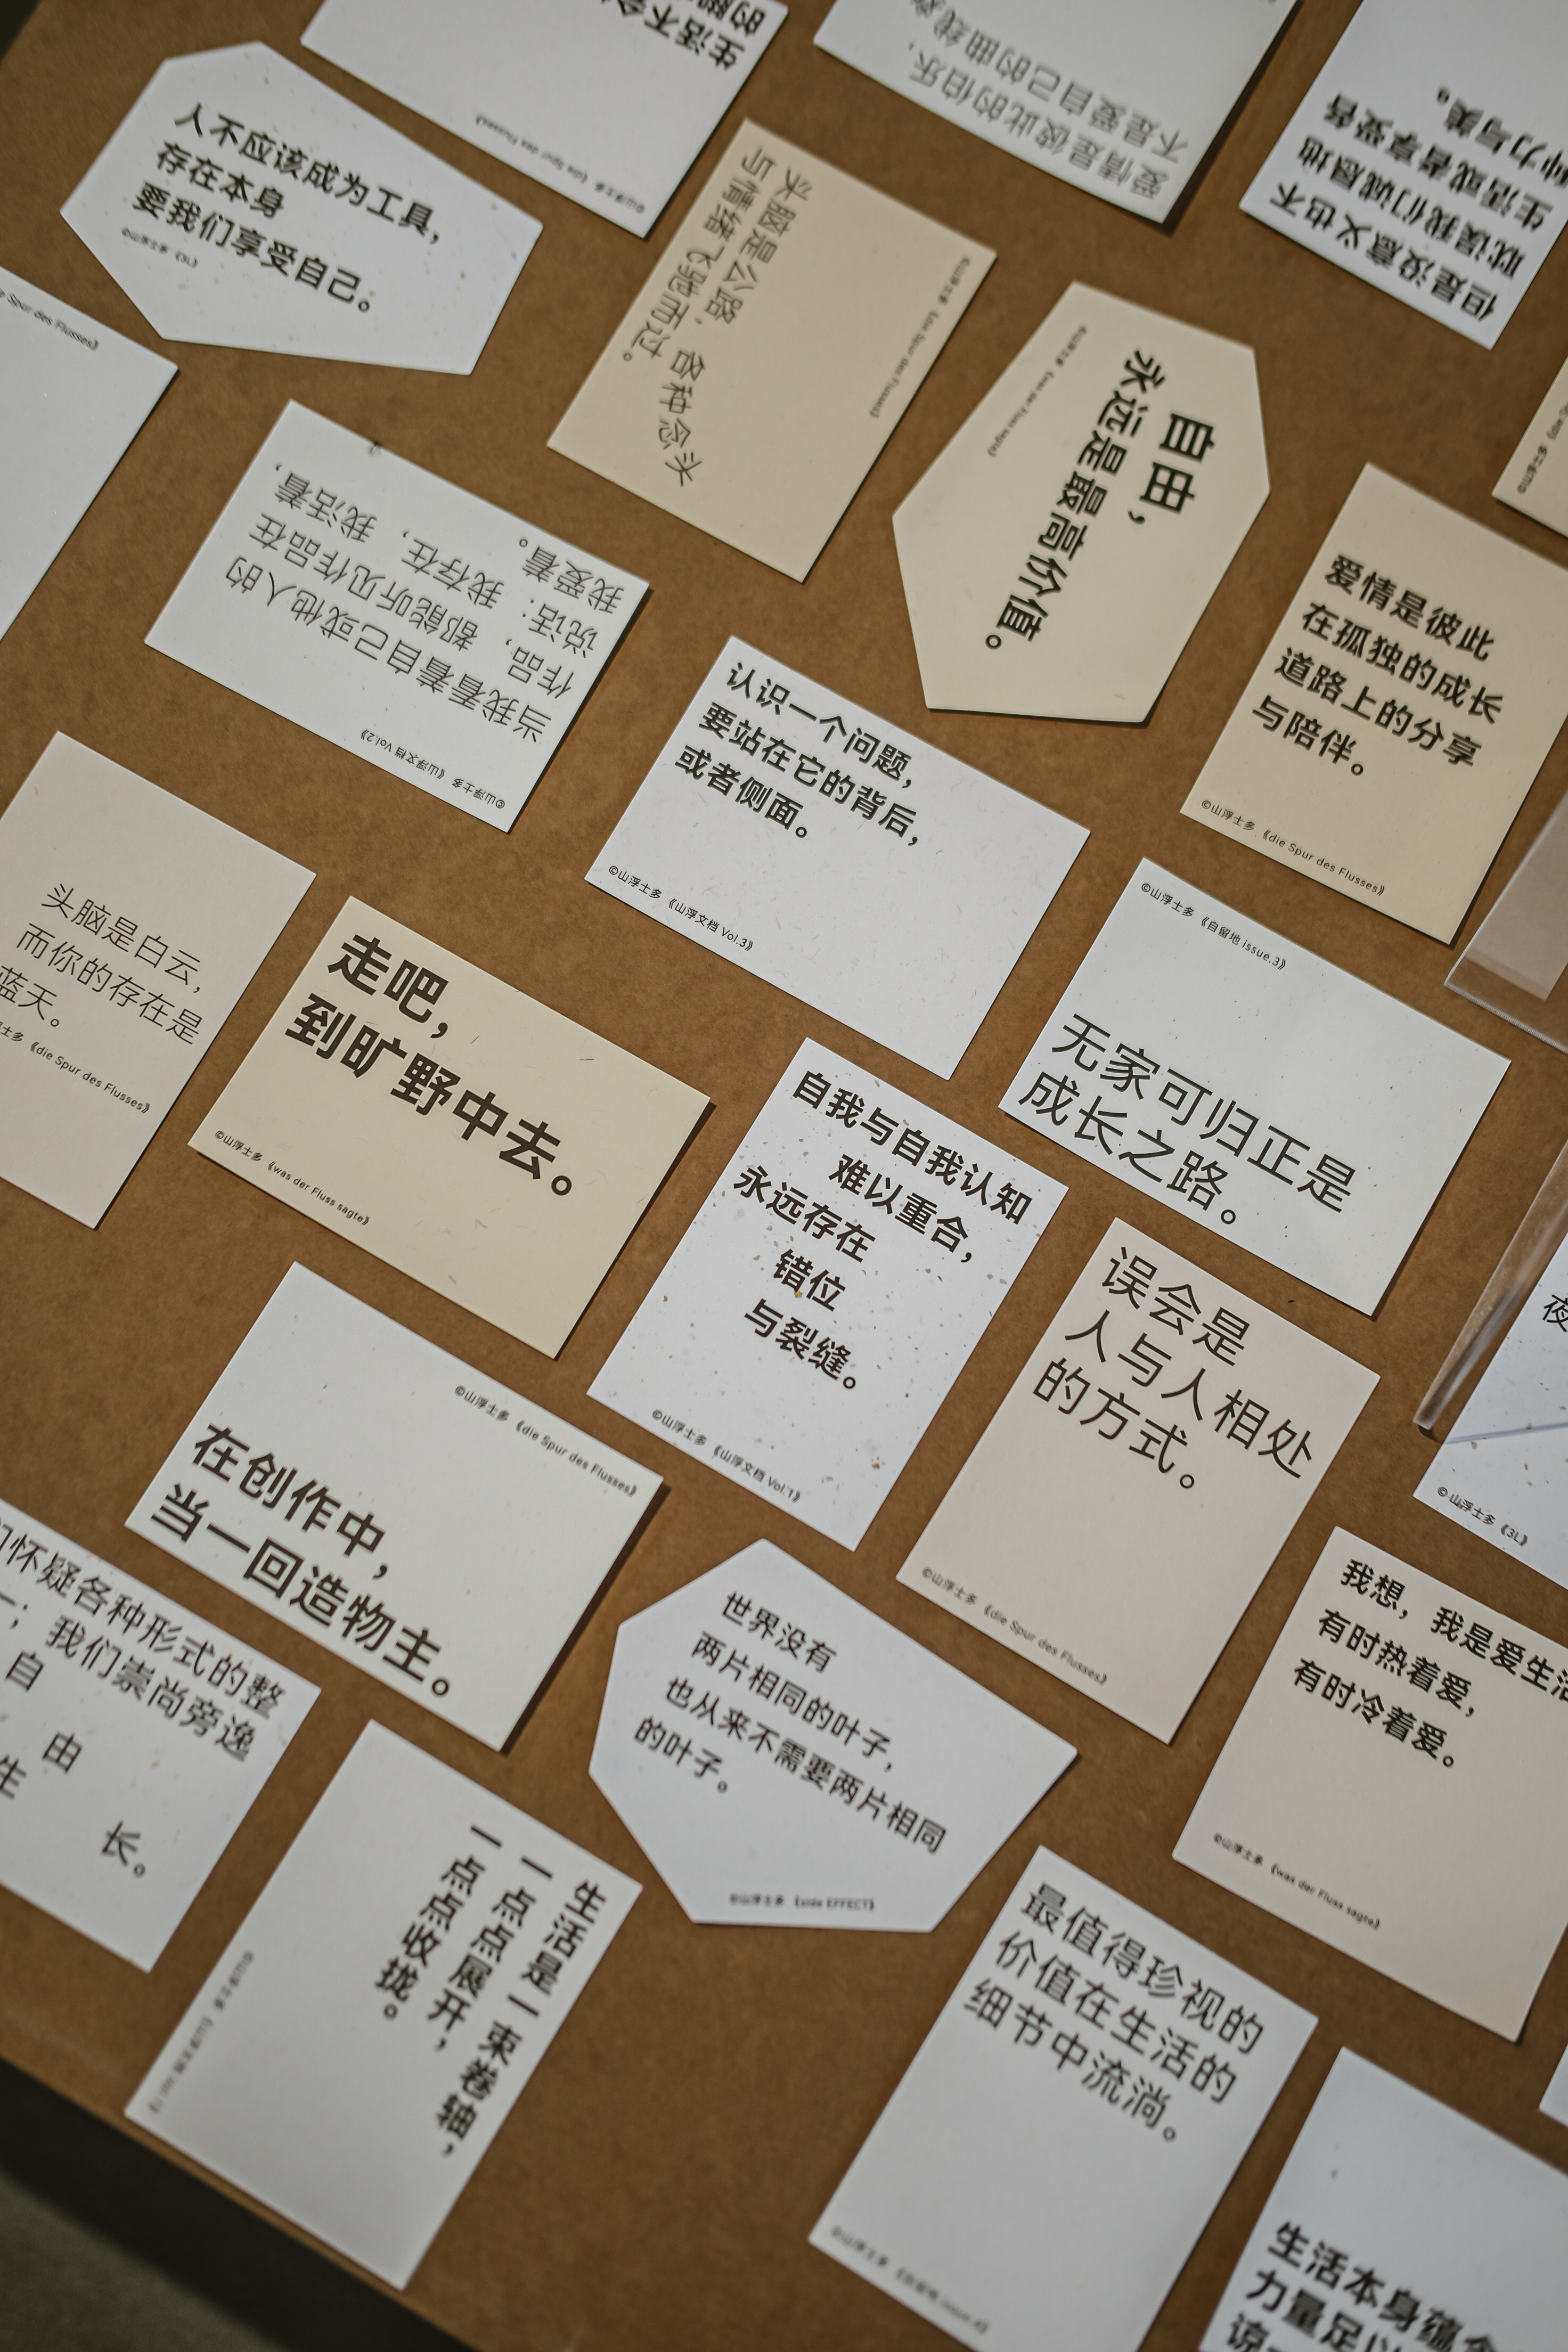 生活不会
的脚
©山浮士多 《die Spur des Flusses》
爱情是彼此的伯乐，
不是爱自己的曲线
但是没意义也不
耽误我们诚恳地
生活或者享受智
力与美。
人不应该成为工具，
存在本身
要我们享受自己。
©山浮士多 《3L》
头脑是公路，各种念头
与情绪飞驰而过。
©山浮士多 《die Spur des Flusses》
die Spur des Flusses》
自由，
永远是最高价值。
©山浮士多 《was der Fluss sagte》
当我看着自己或他人的
作品，都能听见作品在
说话：我存在，我活着，
我爱着。
©山浮士多 《山浮文档 Vol.2》
爱情是彼此
在孤独的成长
道路上的分享
与陪伴。
©山浮士多 《die Spur des Flusses》
认识一个问题，
要站在它的背后，
或者侧面。
©山浮士多 《山浮文档 Vol.3》
头脑是白云，
而你的存在是
蓝天。
士多 《die Spur des Flusses》
走吧，
到旷野中去。
©山浮士多 《was der Fluss sagte》
©山浮士多 《自留地 issue.3》
无家可归正是
成长之路。
自我与自我认知
难以重合，
永远存在
错位
与裂缝。
©山浮士多 《山浮文档 Vol.1》
误会是
人与人相处
的方式。
©山浮士多 《die Spur des Flusses》
夜
©山浮士多 《3L》
©山浮士多 《die Spur des Flusses》
在创作中，
当一回造物主。
们怀疑各种形式的整
一；我们崇尚旁逸
自
由
生
长。
世界没有
两片相同的叶子，
也从来不需要两片相同
的叶子。
©山浮士多 《side EFFECT》
我想，我是爱生活
有时热着爱，
有时冷着爱。
©山浮士多 《was der Fluss sagte》
生活是一束卷轴，
一点点展开，
一点点收拢。
最值得珍视的
价值在生活的
细节中流淌。
©山浮士多 《自留地 issue.4》
生活本身蕴含
力量足以